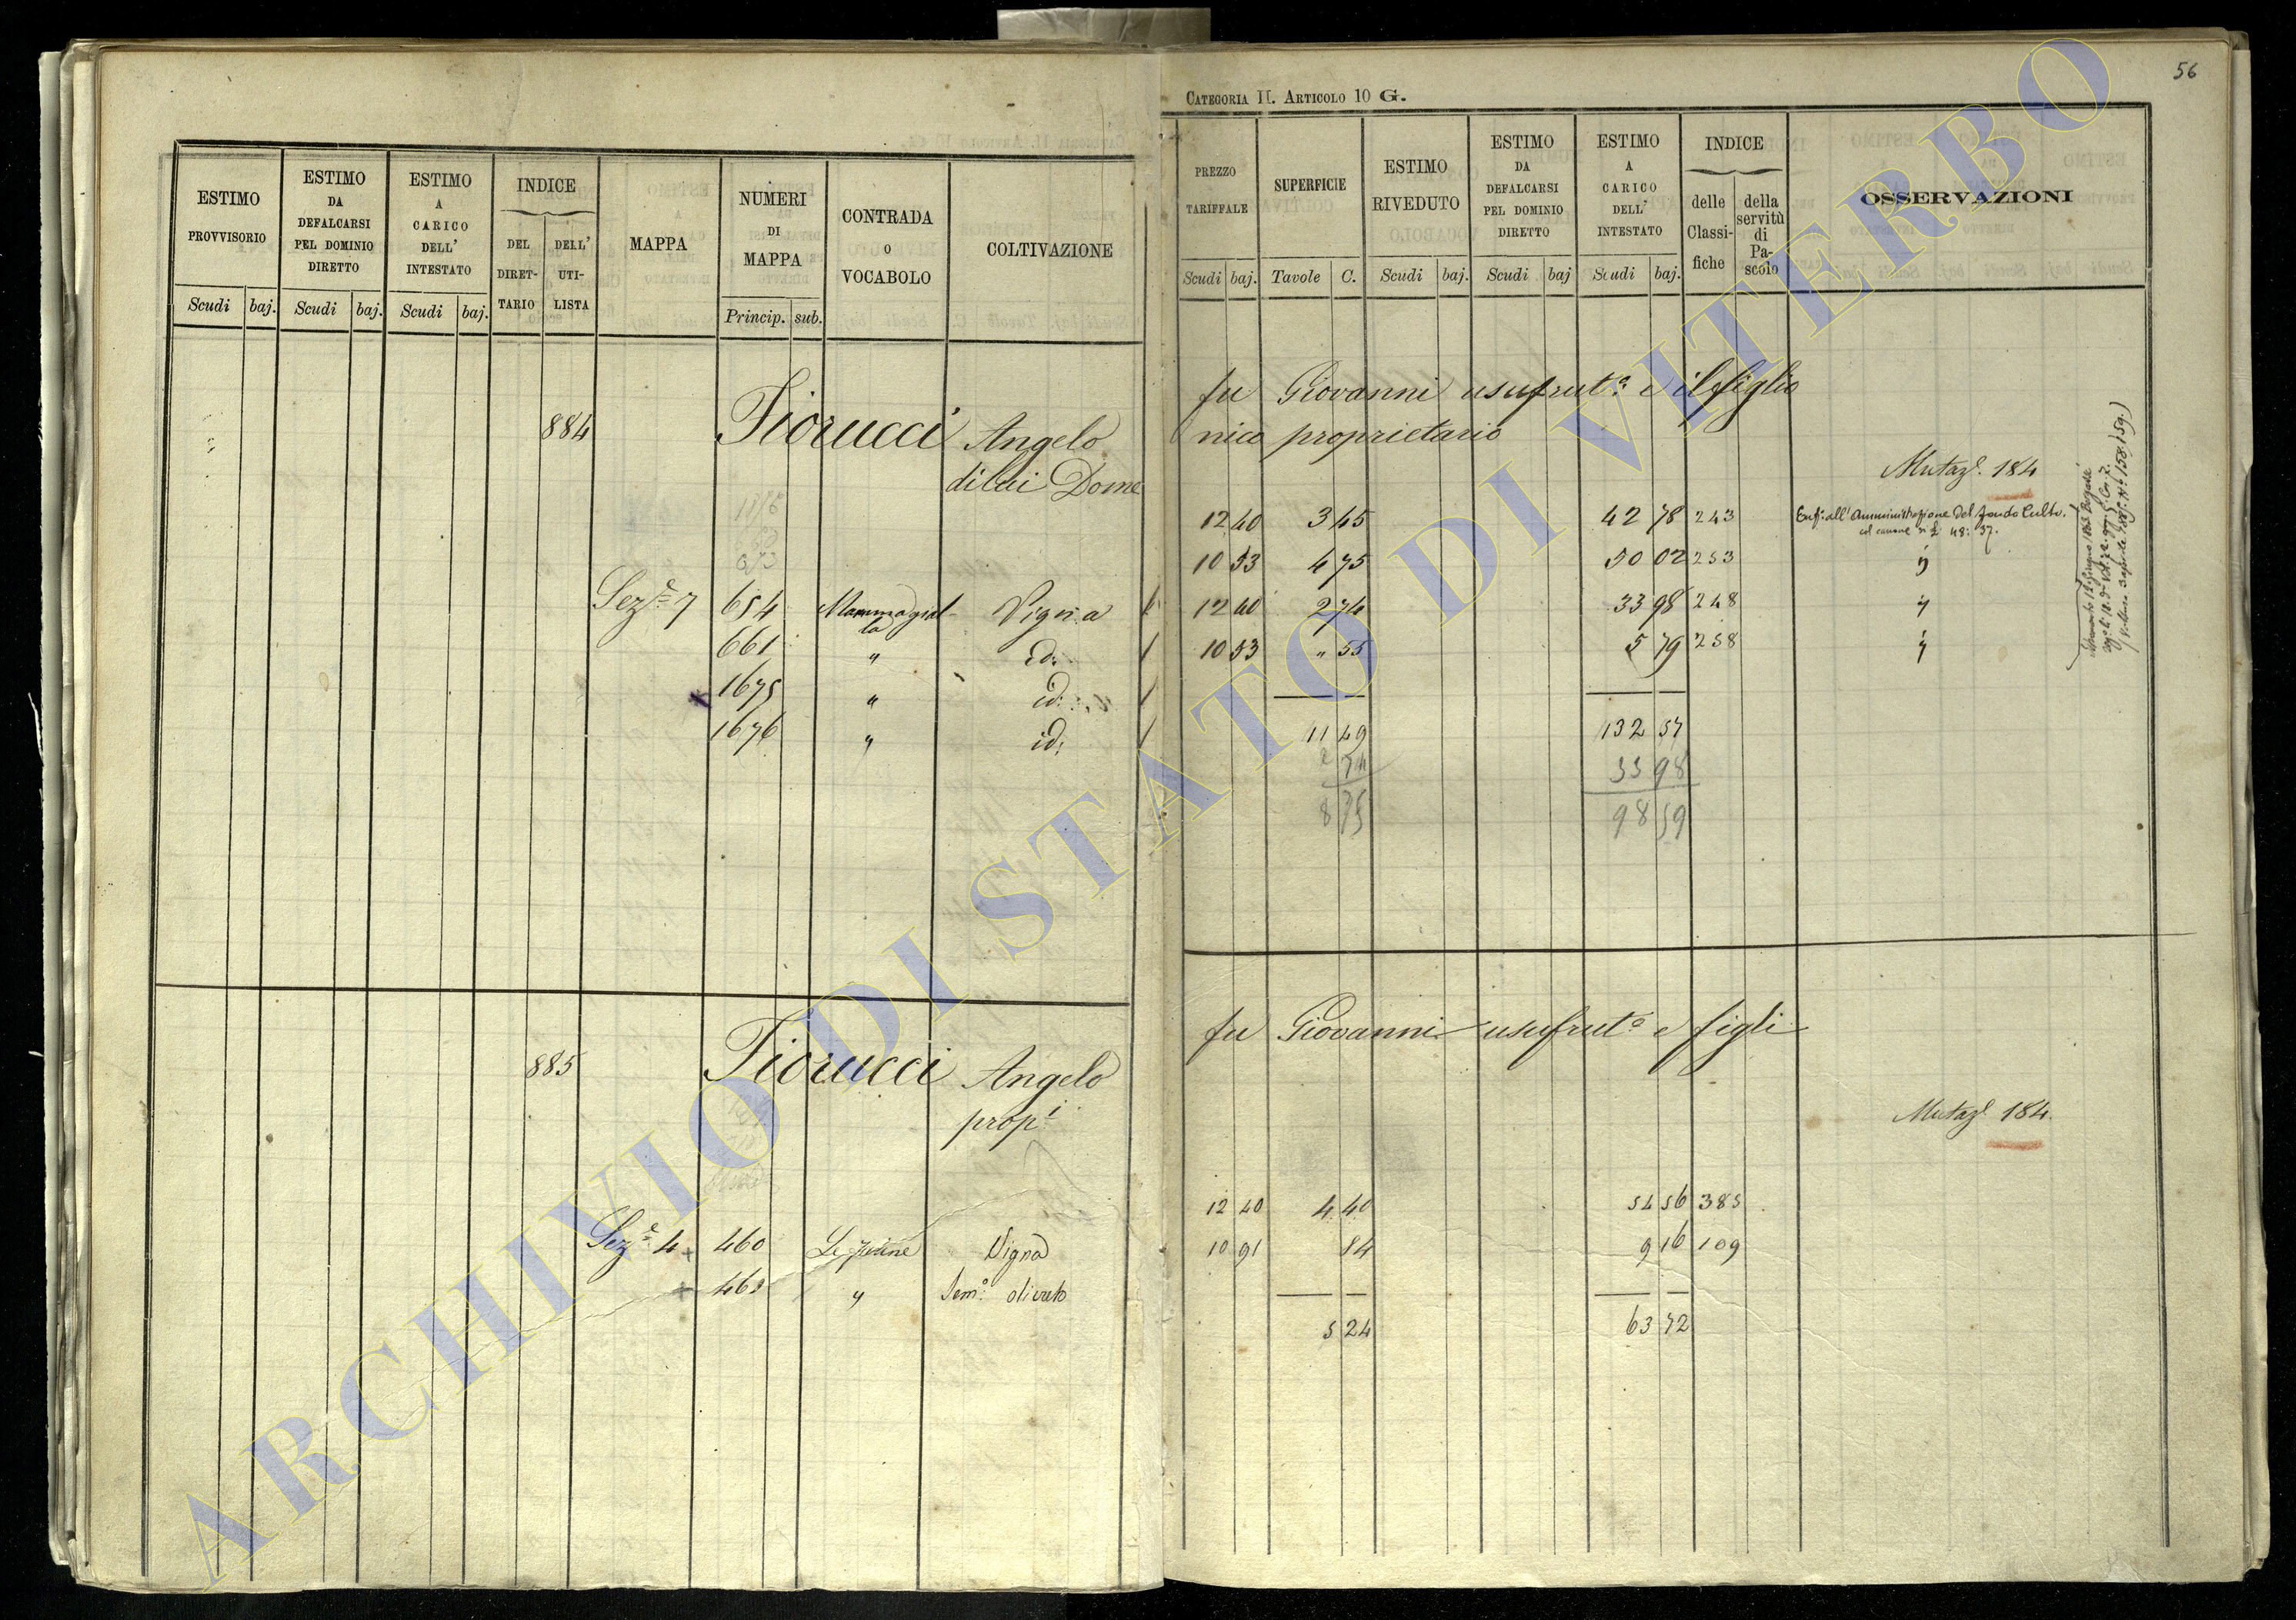 56
CATEGORIA II. ARTICOLO 10 G.
ESTIMO PROVVISORIO Scudi baj.
ESTIMO DA DEFALCARSI PEL DOMINIO DIRETTO Scudi baj.
ESTIMO A CARICO DELL' INTESTATO Scudi baj.
INDICE DEL DIRET-TARIO DELL' UTI-LISTA
MAPPA
NUMERI DI MAPPA Princip. sub.
CONTRADA O VOCABOLO
COLTIVAZIONE
PREZZO TARIFFALE Scudi baj.
SUPERFICIE Tavole C.
ESTIMO RIVEDUTO Scudi baj.
ESTIMO DA DEFALCARSI PEL DOMINIO DIRETTO Scudi baj
ESTIMO A CARICO DELL' INTESTATO Scudi baj.
INDICE delle Classi-fiche della servitù di Pa-scolo
OSSERVAZIONI
884 Fiorucci Angelo fu Giovanni usufrut.º e il figlio
di lui Dome nico proprietario
Mutazᵉ. 184
Sezᵉ 7 654 Mammagial-la Vigna 12 40 3 45 42 78 243 Enf: all'Amministrazione del fondo Culto.
col canone di £ 48: 37.
661 " id: 10 53 4 75 50 02 253 "
1675 " id: 12 40 2 74 33 98 248 "
1676 " id: 10 53 " 55 5 79 258 "
11 49 132 57
2 74 33 98
8 75 98 59
885 Fiorucci Angelo fu Giovanni usufrut.º e figli
propⁱ
Mutazᵉ 184.
Sezᵉ 4 460 Vigna 12 40 4 40 54 56 385
463 " Semº: olivato 10 91 84 9 16 109
5 24 63 72
ARCHIVIO DI STATO DI VITERBO